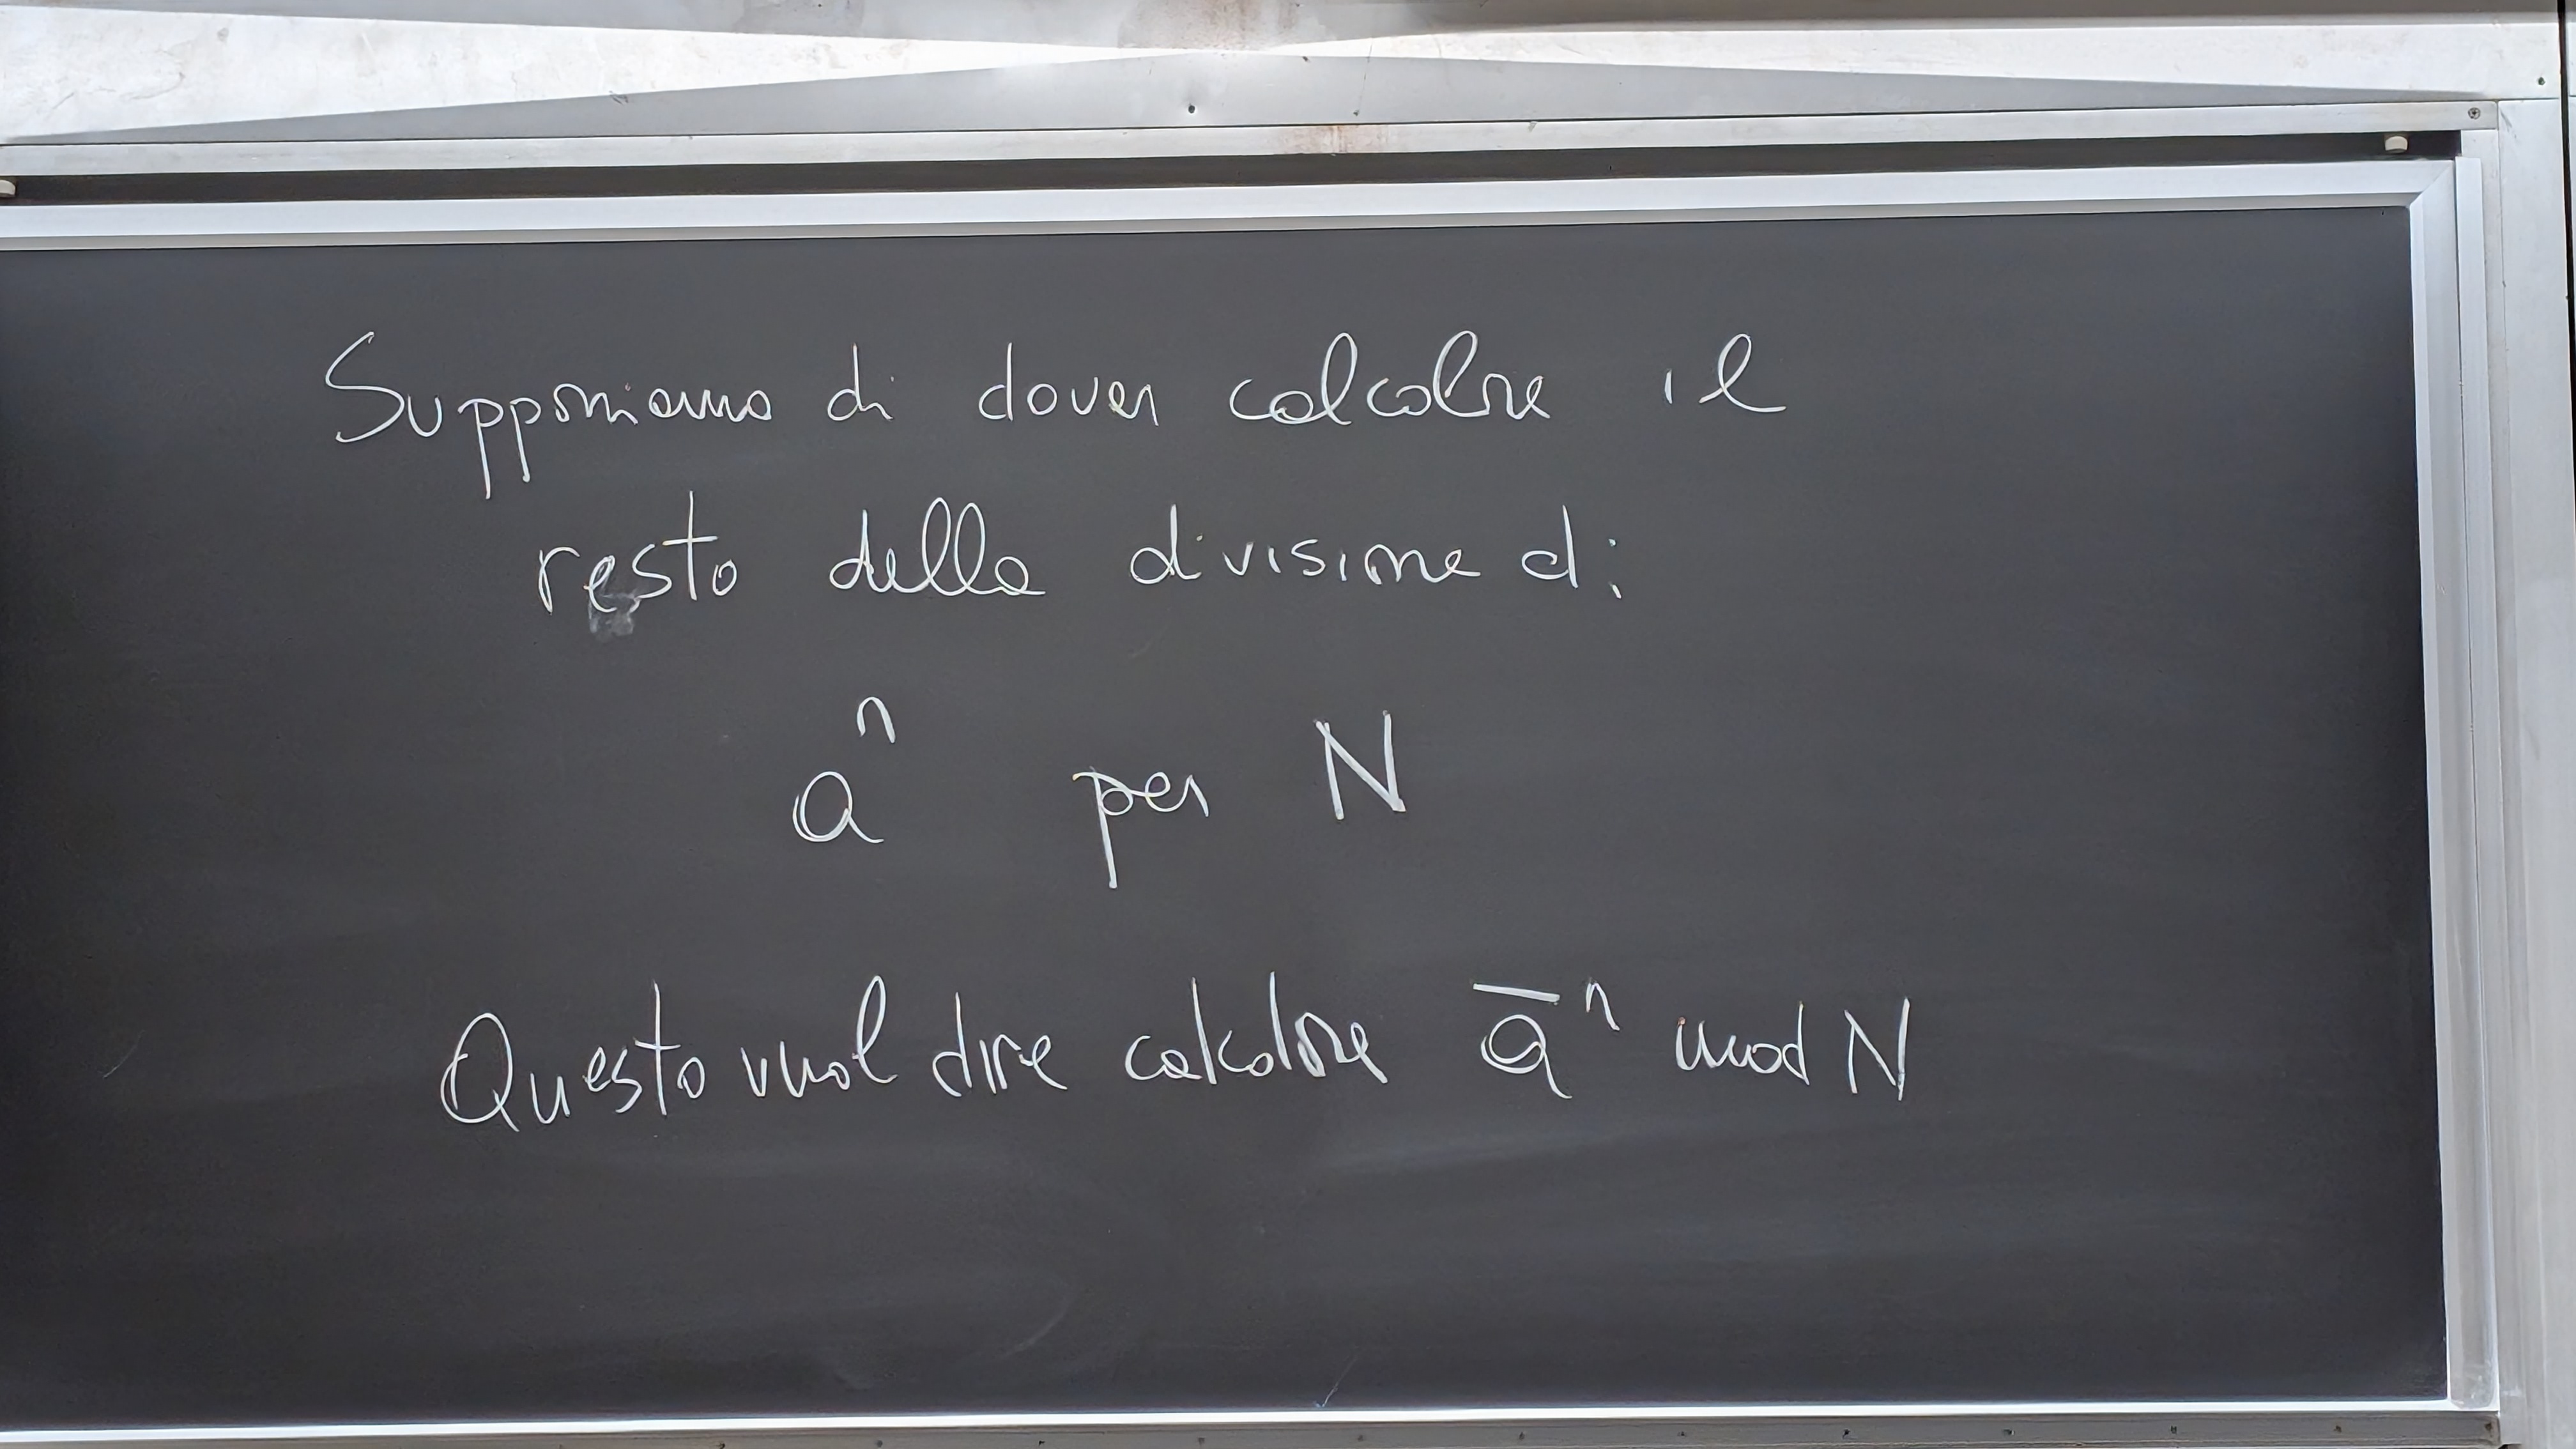 Supponiamo di dover calcolare il
resto della divisione di
aⁿ per N
Questo vuol dire calcolare a̅ⁿ mod N